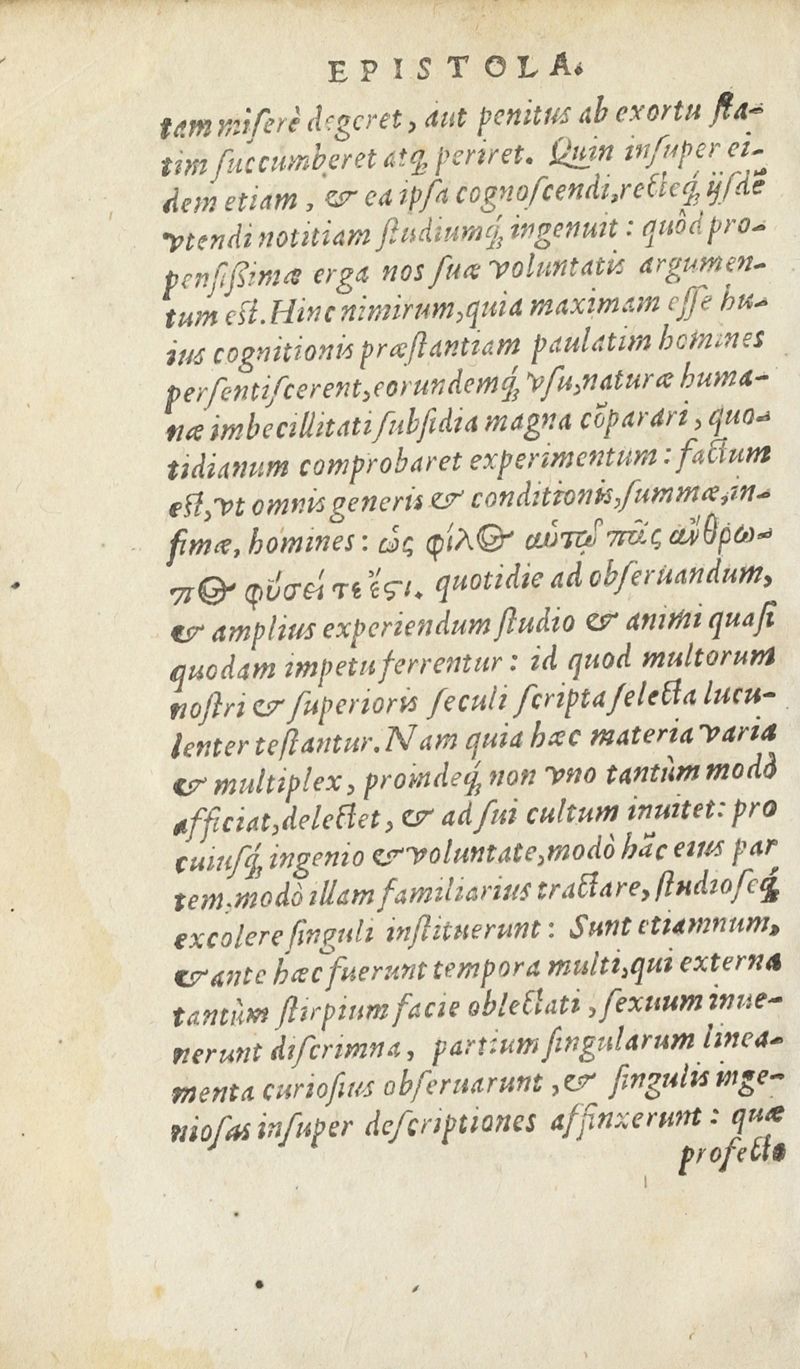 EPISTOLA.
tam miſerè degeret, aut penitus ab exortu ſta-
tim ſuccumberet atq; periret. Quin inſuper ei-
dem etiam, & ea ipſa cognoſcendi, recteq́; ijſdẽ
vtendi notitiam ſtudiumq́; ingenuit: quòd pro-
penſißimæ erga nos ſuæ voluntatis argumen-
tum eſt. Hinc nimirum, quia maximam eſſe hu-
ius cognitionis præſtantiam paulatim homines
perſentiſcerent, eorundemq́; vſu, naturæ huma-
næ imbecillitati ſubſidia magna cõparari, quo-
tidianum comprobaret experimentum: factum
eſt, vt omnis generis & conditionis, ſummæ, in-
fimæ, homines: ὡς φίλος αὐτῷ πᾶς ἄνθρω-
πος φύσει τὲ ἔϛι. quotidie ad obſeruandum,
& amplius experiendum ſtudio & animi quaſi
quodam impetu ferrentur: id quod multorum
noſtri & ſuperioris ſeculi ſcripta ſelecta lucu-
lenter teſtantur. Nam quia hæc materia varia
& multiplex, proindeq́; non vno tantùm modò
afficiat, delectet, & ad ſui cultum inuitet: pro
cuiuſq́; ingenio & voluntate, modò hãc eius par
tem, modò illam familiarius tractare, ſtudioſeq́;
excolere ſinguli inſtituerunt: Sunt etiamnum,
& ante hæc fuerunt tempora multi, qui externa
tantùm ſtirpium facie oblectati, ſexuum inue-
nerunt diſcrimna, partium ſingularum linea-
menta curioſius obſeruarunt, & ſingulis inge-
nioſas inſuper deſcriptiones affinxerunt: quæ
profecto